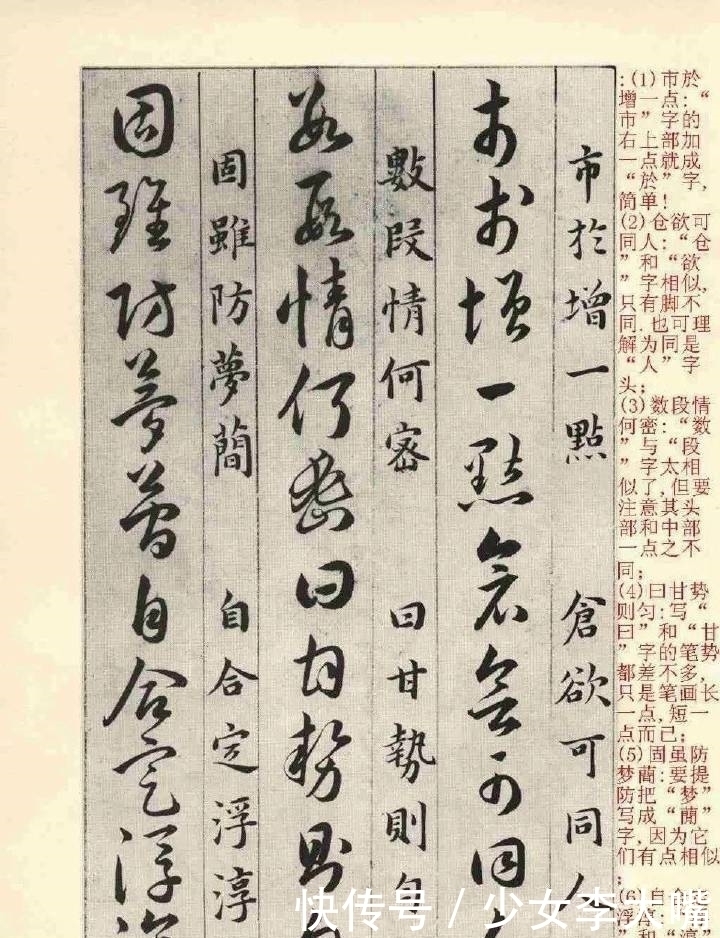 :(1)市於
增一点:“
市”字的
右上部加
一点就成
“於”字,
简单!
(2)仓欲可
同人:“仓
”和“欲
”字相似,
只有脚不
同.也可理
解为同是
“人”字
头;
(3)数段情
何密:“数
”与“段
”字太相
似了,但要
注意其头
部和中部
一点之不
同;
(4)曰甘势
则匀:写“
曰”和“甘
”字的笔势
都差不多,
只是笔画长
一点,短一
点而己;
(5)固虽防
梦蕳:要提
防把“梦”
写成“蕳”
字,因为它
们有点相似
;
市於增一點 倉欲可同人
市於增一點倉欲可同
數段情何密 曰甘勢則勻
數段情何密曰甘勢則
固雖防夢蕳 自合定浮淳
固雖防夢蕳自合定浮
快传号 / 少女李大嘴